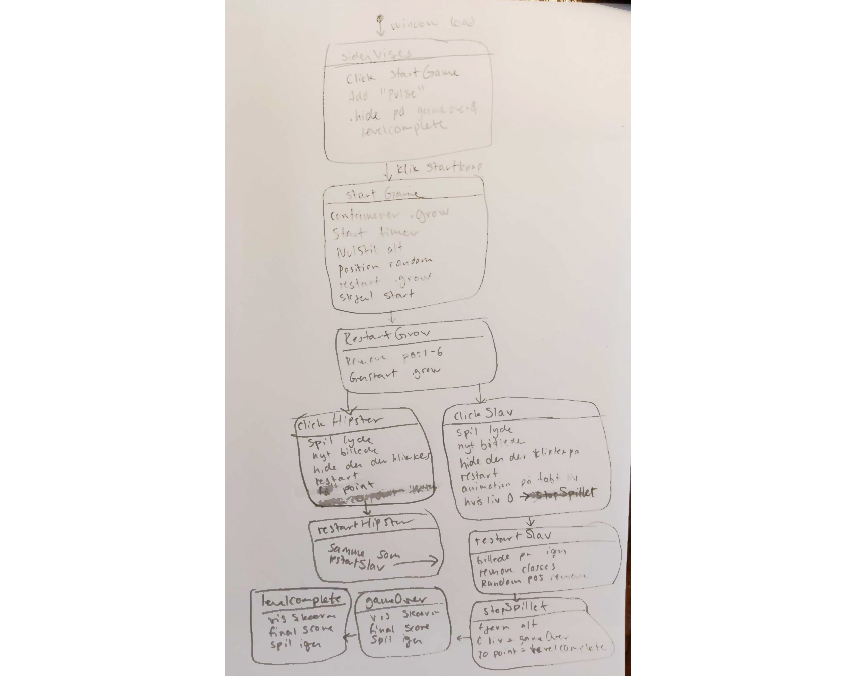 window load
siden Vises
Click StartGame
Add "Pulse"
.hide på gameover &
levelcomplete
klik Startknap
start Game
containerer .grow
Start timer
Nulstil alt
Position random
restart .grow
Skjul start
RestartGrow
Remove pos1-6
Genstart .grow
click Hipster
spil lyde
nyt billede
hide den der klikkes
restart
point
click Slav
spil lyde
nyt billede
hide den der klikkes på
restart
animation på tabt liv
hvis liv 0 → stopSpillet
restartHipster
samme som
restartSlav
restart Slav
billede på igen
remove classes
Random pos
stopSpillet
fjern alt
liv = gameOver
20 point = levelcomplete
gameOver
vis skærm
final score
Spil igen
levelcomplete
vis skærm
final score
spil igen